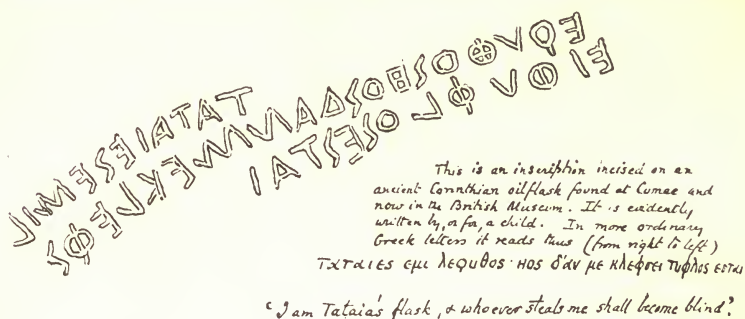 ΤΑΤΑΙΕSΕΜΙL
ΕϘVΘΟSΗΟSΔΑΝΜΕΚLΕΦS
ΕΙΘVΦLΟSΕSΤΑΙ
This is an inscription incised on an
ancient Corinthian oilflask found at Cumae and
now in the British Museum. It is evidently
written by, or for, a child. In more ordinary
Greek letters it reads thus (from right to left)
ΤΑΤΑΙΕS ΕΜΙ ΛΕϘΥΘΟS · ΗΟS Δ'ΑΝ ΜΕ ΚΛΕΦSΕΙ ΤΥΦΛΟS ΕSΤΑΙ
'I am Tataia's flask, & whoever steals me shall become blind'.